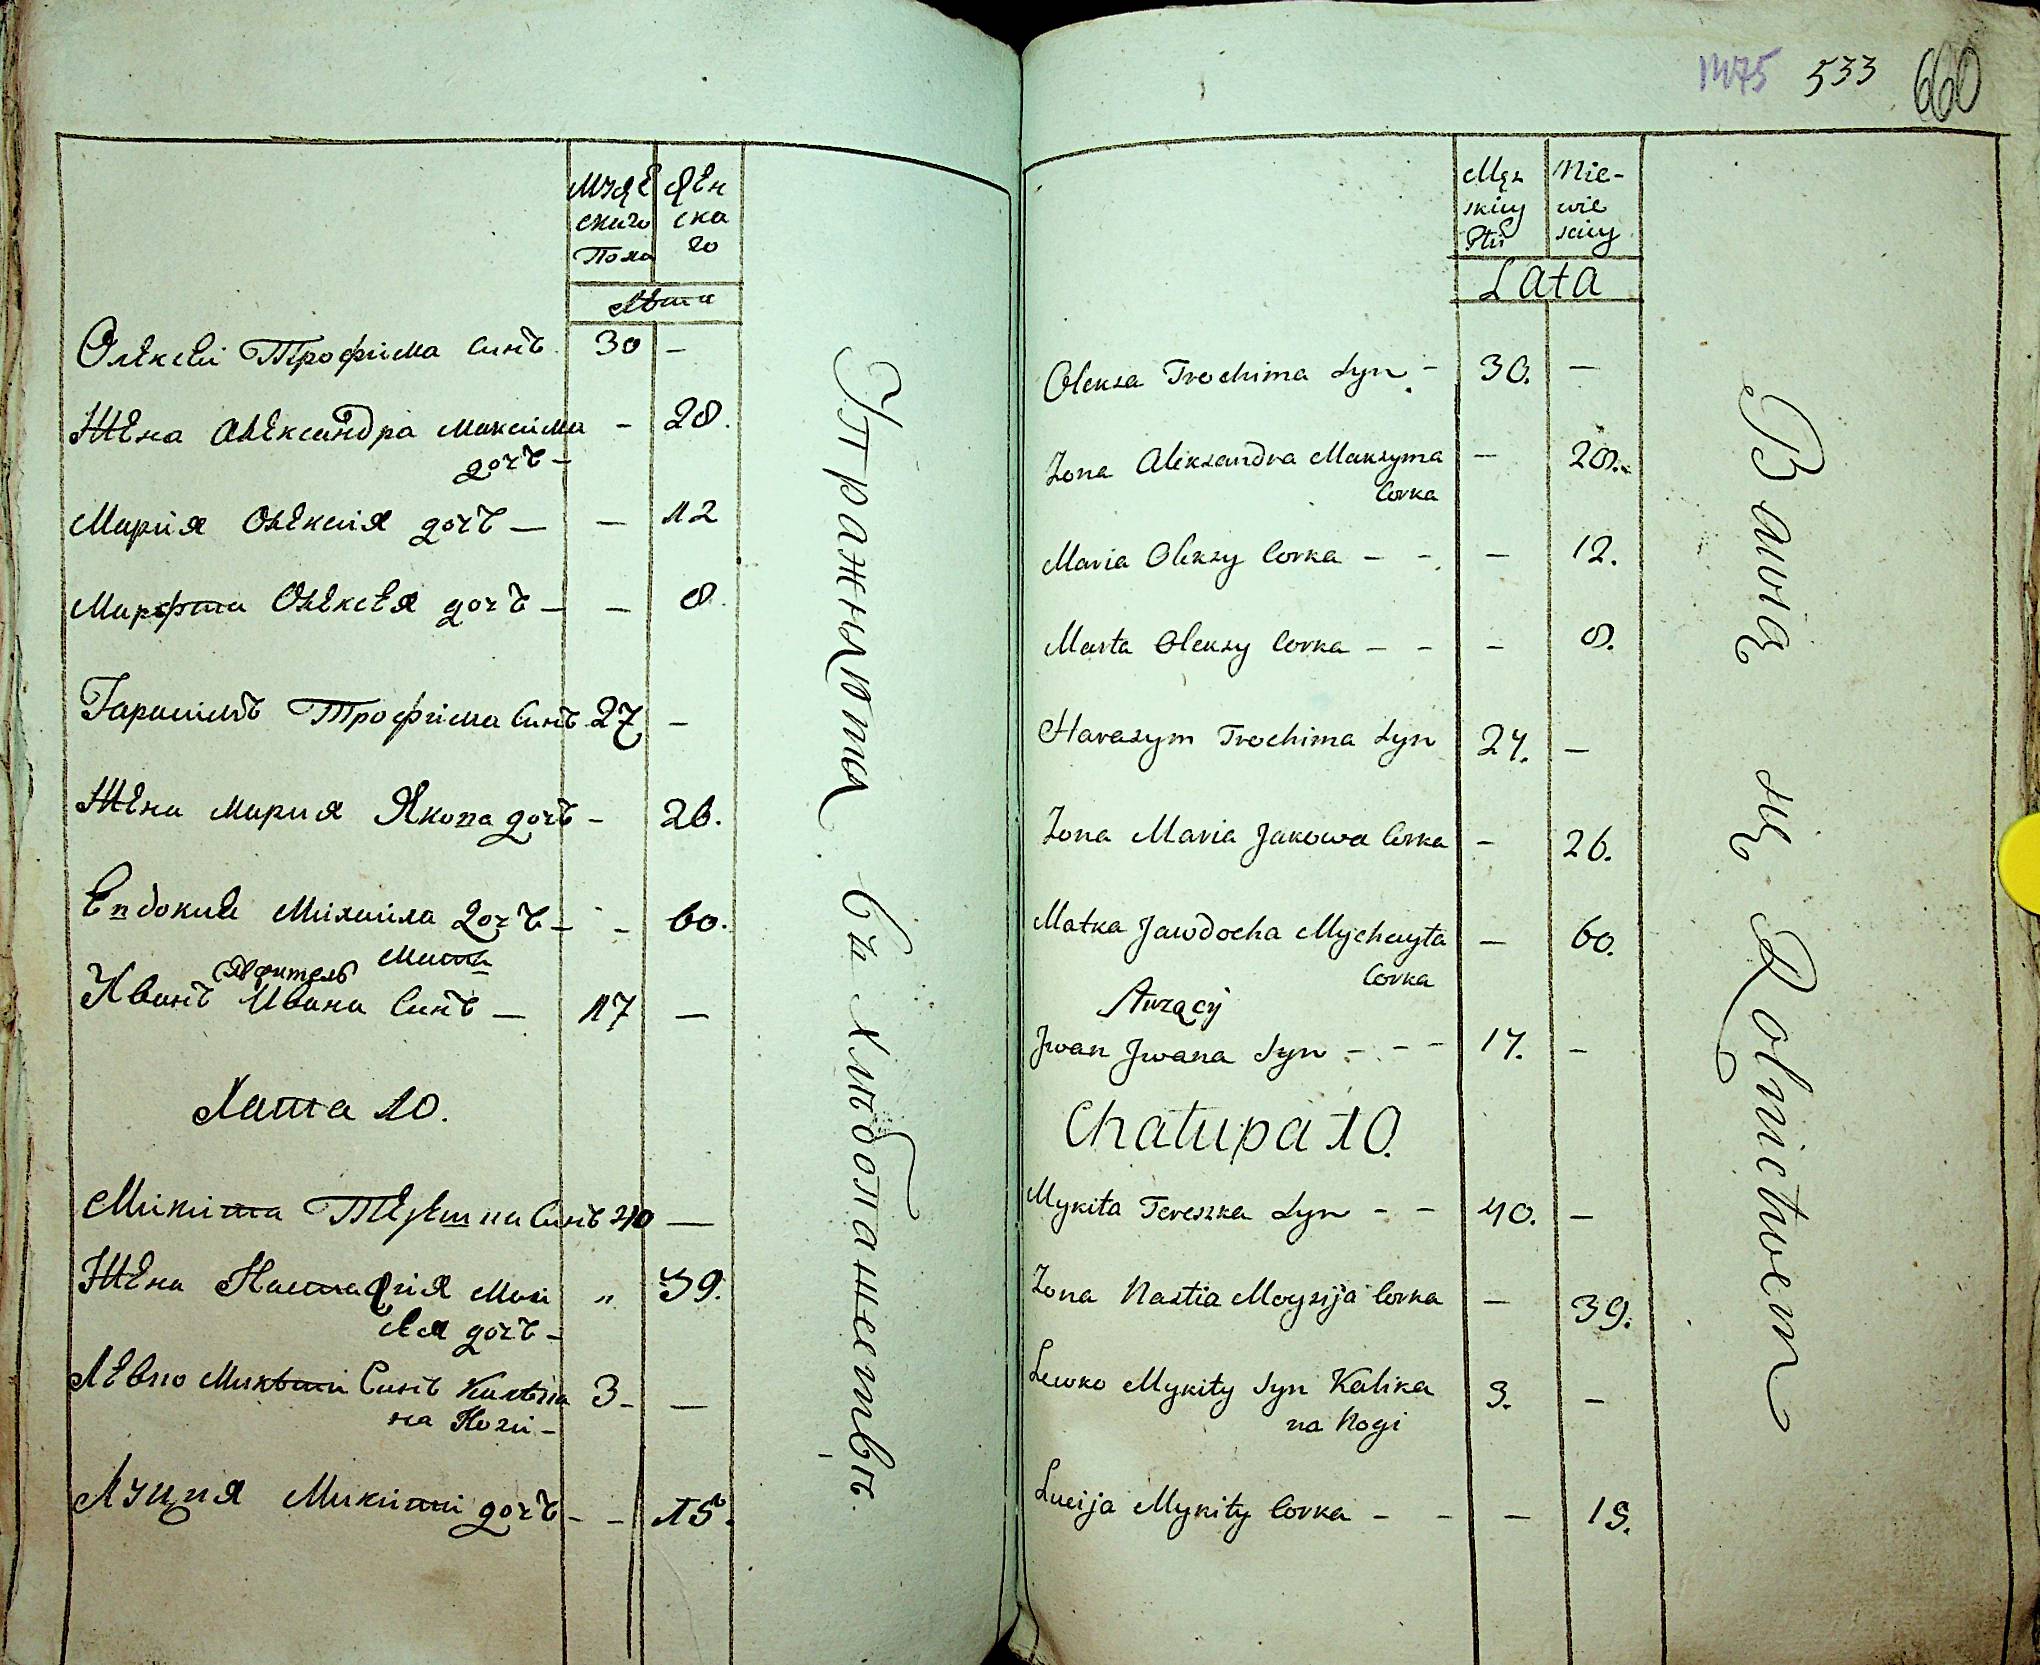 Муже
ского
Пола
Жен
ска
го
Лѣта
Олексѣй Трофима Синъ 30 –
Жена Александра Максима – 28.
дочъ –
Мария Олексія дочъ – – 12
Марфта Олексея дочъ – – 8.
Гарасимъ Трофима Синъ 27 –
Жена Мария Якопа дочъ – 26.
Евдокия Михаила дочъ – – 60.
Мати
Служитель
Иванъ Ивана Синъ – 17 –
Хата 10.
Микита Терешка Синъ 40 –
Жена Настасия Мои „ 39.
сея дочъ –
Левко Микити Синъ Калѣка 3 – –
на Ноги –
Луция Микити дочъ – – 15.
Упражняюта ся Хлѣбопашествѣ.
1475 533 660
Męz
skiey
Płci
Nie-
wie
sciey
Lata
Olexsa Trochima Syn – 30. –
Zona Alexsandra Maksyma – 28.
Corka
Maria Olexsy Corka – – – 12.
Marta Olexsy Corka – – – 8.
Harasym Trochima Syn 27. –
Zona Maria Jakowa Corka – 26.
Matka Jawdocha Mychayła – 60.
Corka
Służący
Jwan Jwana Syn – – – 17. –
Chałupa 10.
Mykita Tereszka Syn – – 40. –
Zona Nastia Moysija Corka – 39.
Lewko Mykity Syn Kalika 3. –
na Nogi
Lucija Mykity Corka – – – 15.
Bawią się Rolnictwem